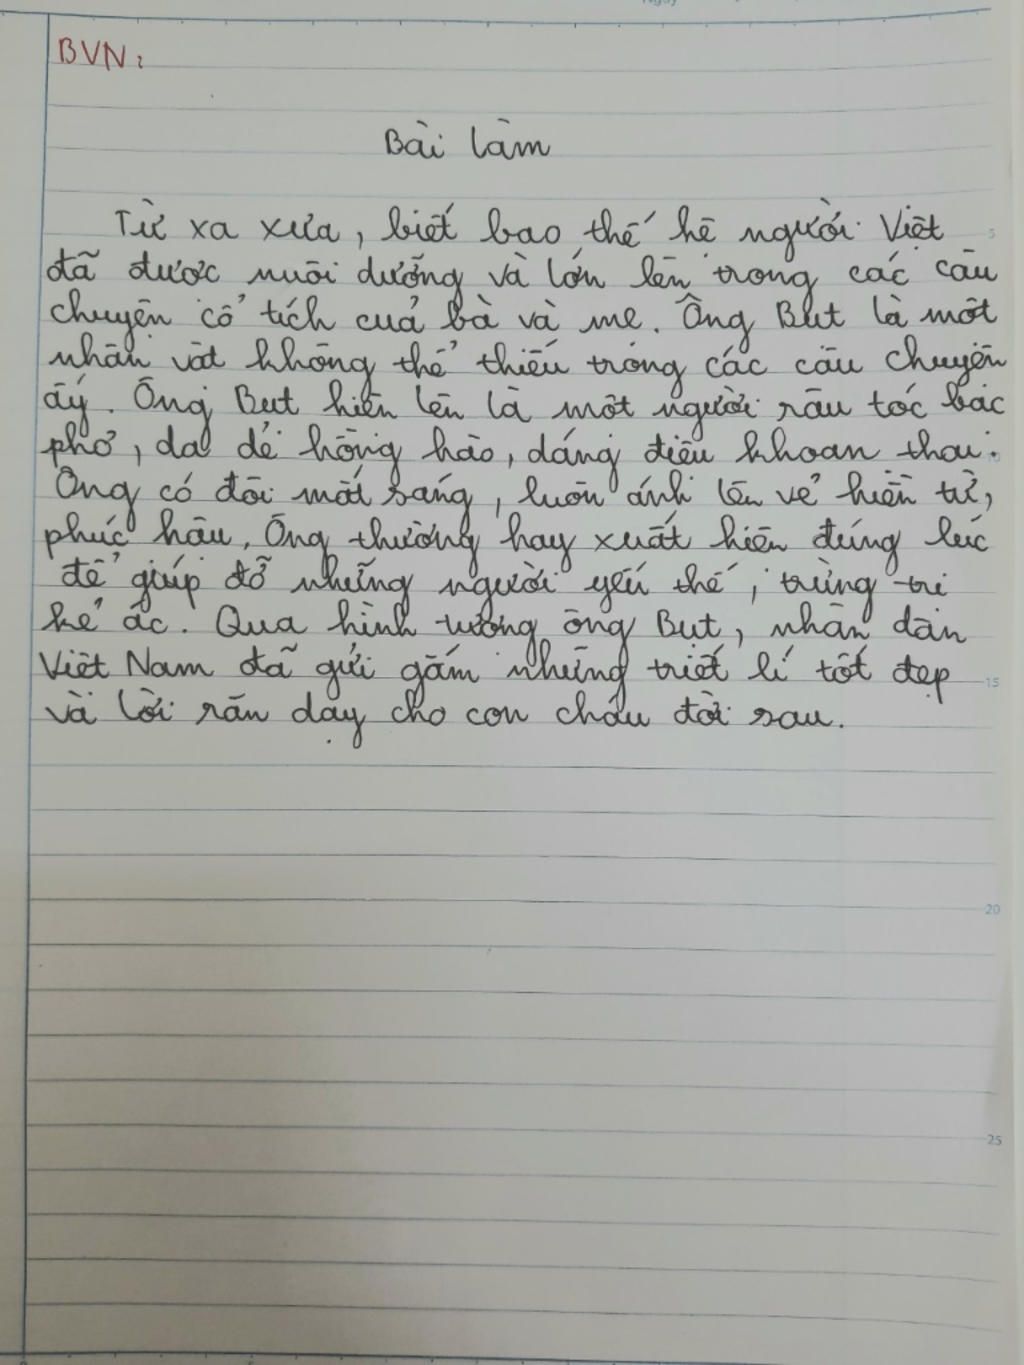 BVN:
Bài làm
Từ xa xưa, biết bao thế hệ người Việt
đã được nuôi dưỡng và lớn lên trong các câu
chuyện cổ tích của bà và mẹ. Ông Bụt là một
nhân vật không thể thiếu trong các câu chuyện
ấy. Ông Bụt hiện lên là một người râu tóc bạc
phơ, da dẻ hồng hào, dáng điệu khoan thai.
Ông có đôi mắt sáng, luôn ánh lên vẻ hiền từ,
phúc hậu. Ông thường hay xuất hiện đúng lúc
để giúp đỡ những người yếu thế, trừng trị
kẻ ác. Qua hình tượng ông Bụt, nhân dân
Việt Nam đã gửi gắm những triết lí tốt đẹp
và lời răn dạy cho con cháu đời sau.
5
10
15
20
25